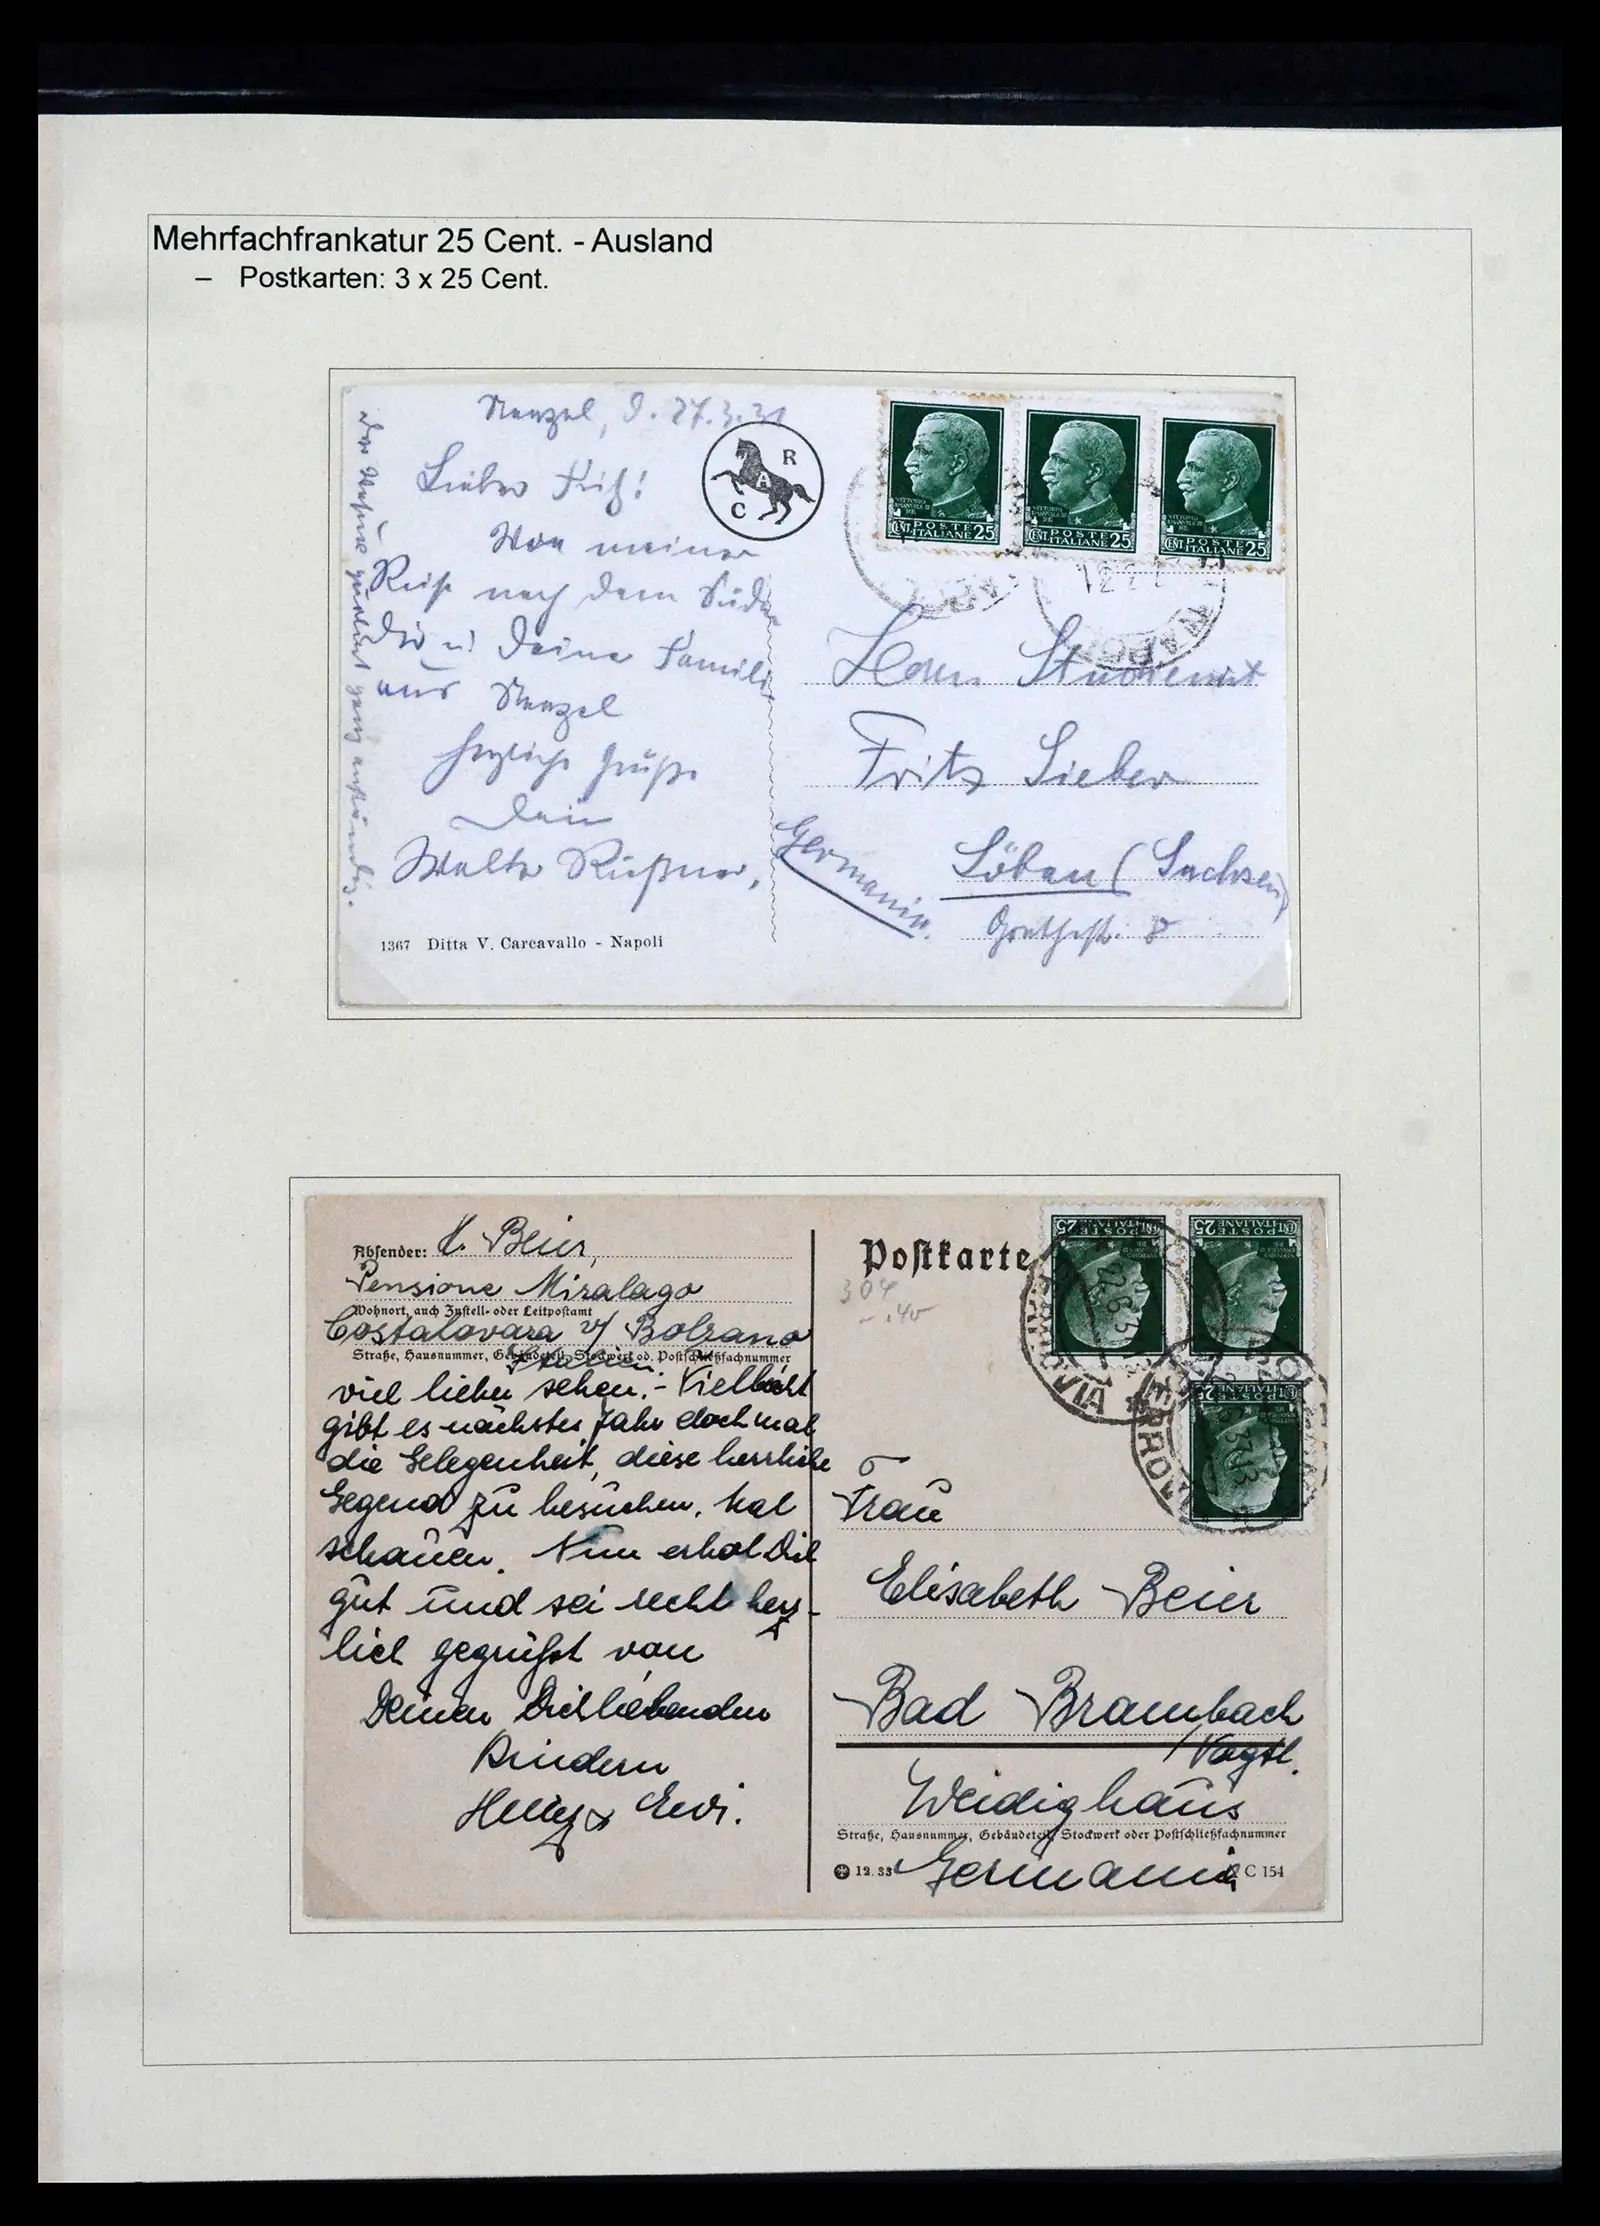 Mehrfachfrankatur 25 Cent. - Ausland
– Postkarten: 3 x 25 Cent.
Neapel, d. 27.3.31
R
A
C
Lieber Fritz!
Von meiner
Reise nach dem Süden
Dir u. Deine Familie
aus Neapel
herzliche Grüße
Dein
Walter
1367 Ditta V. Carcavallo - Napoli
VITTORIO EMANUELE III RE
CENT. POSTE ITALIANE 25
VITTORIO EMANUELE III RE
CENT. POSTE ITALIANE 25
VITTORIO EMANUELE III RE
CENT. POSTE ITALIANE 25
Herrn
Fritz Sieber
Löbau (Sachsen)
Goethestr. 8
Germania.
Absender: H. Beier,
Pensione Miralago
Wohnort, auch Zustell- oder Leitpostamt
Costalovara b/ Bolzano
Straße, Hausnummer, Gebäudeteil, Stockwerk od. Postschließfachnummer
Italien
viel lieber sehen. - Vielleicht
gibt es nächstes Jahr doch mal
die Gelegenheit, diese herrliche
Gegend zu besuchen. Mal
schauen. Nun erhol Dich
gut und sei recht herz-
lich gegrüßt von
Deinen Dich liebenden
Kindern
Postkarte
304
-.40
CENT. POSTE ITALIANE 25
CENT. POSTE ITALIANE 25
CENT. POSTE ITALIANE 25
Frau
Elisabeth Beier
Bad Brambach
/Vogtl.
Weidighaus
Straße, Hausnummer, Gebäudeteil, Stockwerk oder Postschließfachnummer
Germania
12. 33
C 154